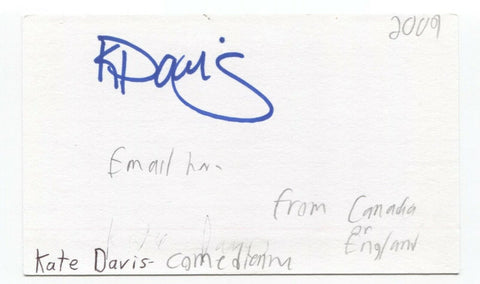 2009
KDavis
Email her
from Canada
or
England
Kate Davis - comedian